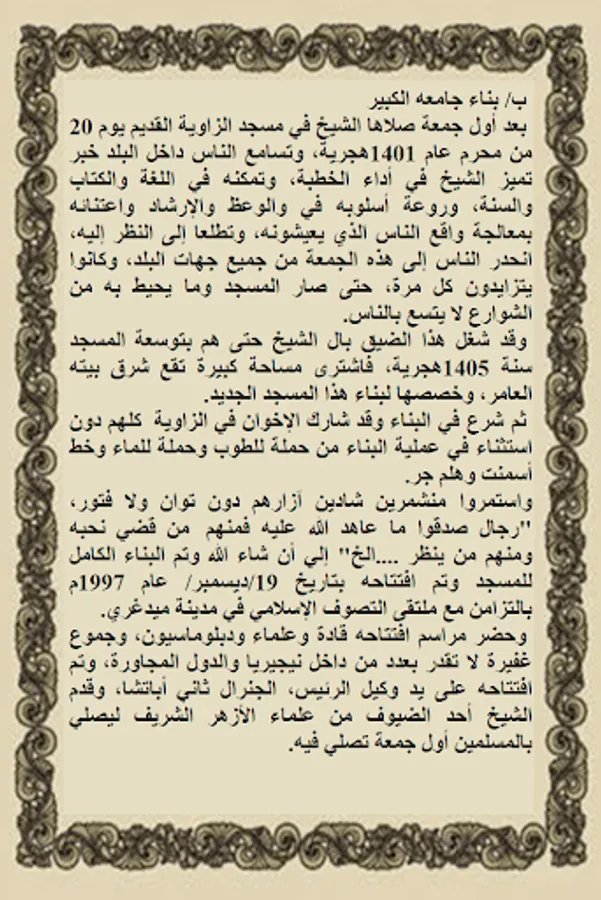 ب/ بناء جامعه الكبير
بعد أول جمعة صلاها الشيخ في مسجد الزاوية القديم يوم 20
من محرم عام 1401هجرية، وتسامع الناس داخل البلد خبر
تميز الشيخ في أداء الخطبة، وتمكنه في اللغة والكتاب
والسنة، وروعة أسلوبه في والوعظ والإرشاد واعتنائه
بمعالجة واقع الناس الذي يعيشونه، وتطلعا إلى النظر إليه،
انحدر الناس إلى هذه الجمعة من جميع جهات البلد، وكانوا
يتزايدون كل مرة، حتى صار المسجد وما يحيط به من
الشوارع لا يتسع بالناس.
وقد شغل هذا الضيق بال الشيخ حتى هم بتوسعة المسجد
سنة 1405هجرية، فاشترى مساحة كبيرة تقع شرق بيته
العامر، وخصصها لبناء هذا المسجد الجديد.
ثم شرع في البناء وقد شارك الإخوان في الزاوية كلهم دون
استثناء في عملية البناء من حملة للطوب وحملة للماء وخط
أسمنت وهلم جر.
واستمروا منشمرين شادين آزارهم دون توان ولا فتور،
"رجال صدقوا ما عاهد الله عليه فمنهم من قضي نحبه
ومنهم من ينظر ....الخ" إلي أن شاء الله وتم البناء الكامل
للمسجد وتم افتتاحه بتاريخ 19/ديسمبر/ عام 1997م
بالتزامن مع ملتقى التصوف الإسلامي في مدينة ميدغري.
وحضر مراسم افتتاحه قادة وعلماء ودبلوماسيون، وجموع
غفيرة لا تقدر بعدد من داخل نيجيريا والدول المجاورة، وتم
افتتاحه على يد وكيل الرئيس، الجنرال ثاني أباتشا، وقدم
الشيخ أحد الضيوف من علماء الأزهر الشريف ليصلي
بالمسلمين أول جمعة تصلي فيه.